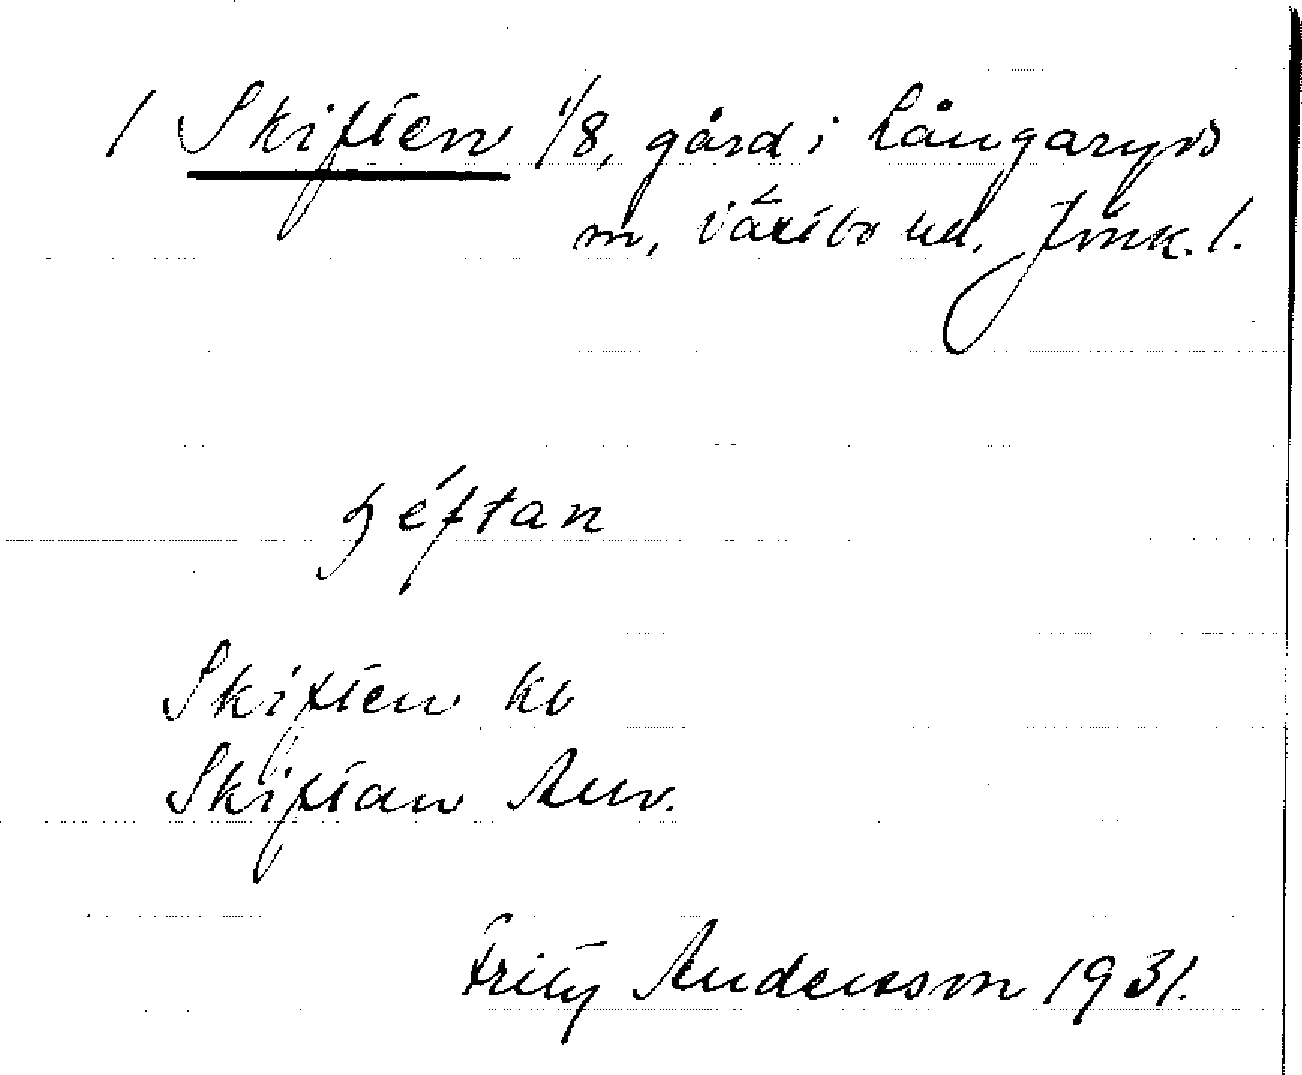 / Skiften 1/8, gård i Långaryds
sn, Västbo hd. Jönk. l.
ʃéftan
Skiften kb
Skiftan Anv.
Fritz Andersson 1931.